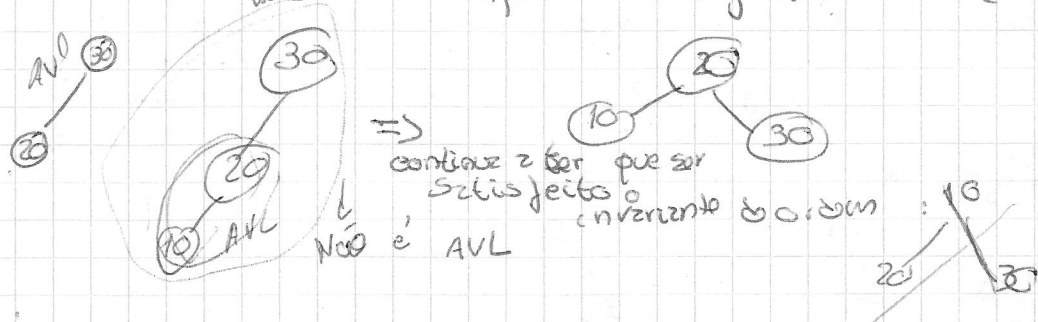 AVL 30
20
30
20
10 AVL
Não é AVL
=>
continua a ter que ser
satisfeito o
invariante da ordem :
20
10
30
10
20
30